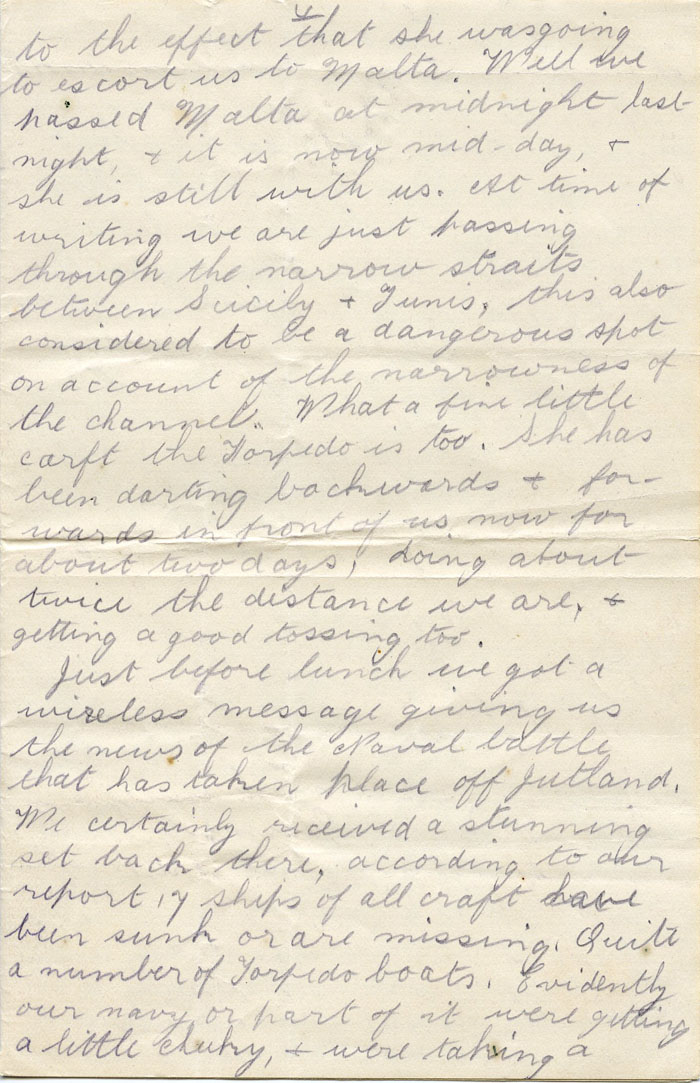 4
to the effect that she wasgoing
to escort us to Malta. Well we
passed Malta at midnight last
night, + it is now mid-day, +
she is still with us. At time of
writing we are just passing
through the narrow straits
between Scicily + Tunis, this also
considered to be a dangerous spot
on account of the narrowness of
the channel. What a fine little
carft the Torpedo is too. She has
been darting backwards + for-
wards in front of us now for
about two days, doing about
twice the distance we are, +
getting a good tossing too.
Just before lunch we got a
wireless message giving us
the news of the Naval battle
that has taken place off Jutland.
We certainly received a stunning
set back there, according to our
report, 17 ships of all craft have
been sunk or are missing. Quite
a number of Torpedo boats. Evidently
our navy or part of it were getting
a little cheeky, + were taking a